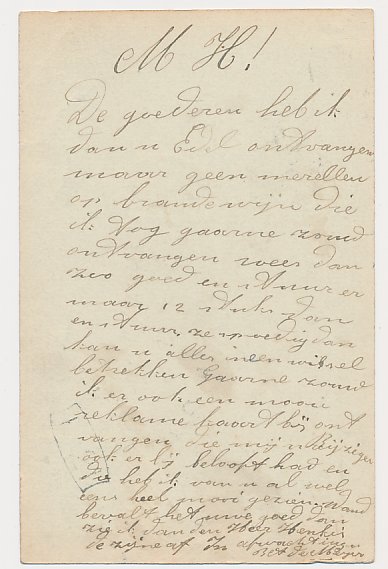 M H!
De goederen heb ik
van u Edel ontvangen
maar geen merellen
op brandewijn die
ik nog gaarne zoud
ontvangen wees dan
zoo goed en stuur er
maar 12 stuks van
en stuur ze spoedig dan
kan u alles in een wissel
betrekken Gaarne zoud
ik er ook een mooi
reklame kaart bij ont
vangen die mij u Reiziger
ook er bij belooft had en
die heb ik van u al wel
eens heel mooi gezien want
bevalt het uwe goed dan
zie ik van den Heer Henkes
de zijne af In afwachting